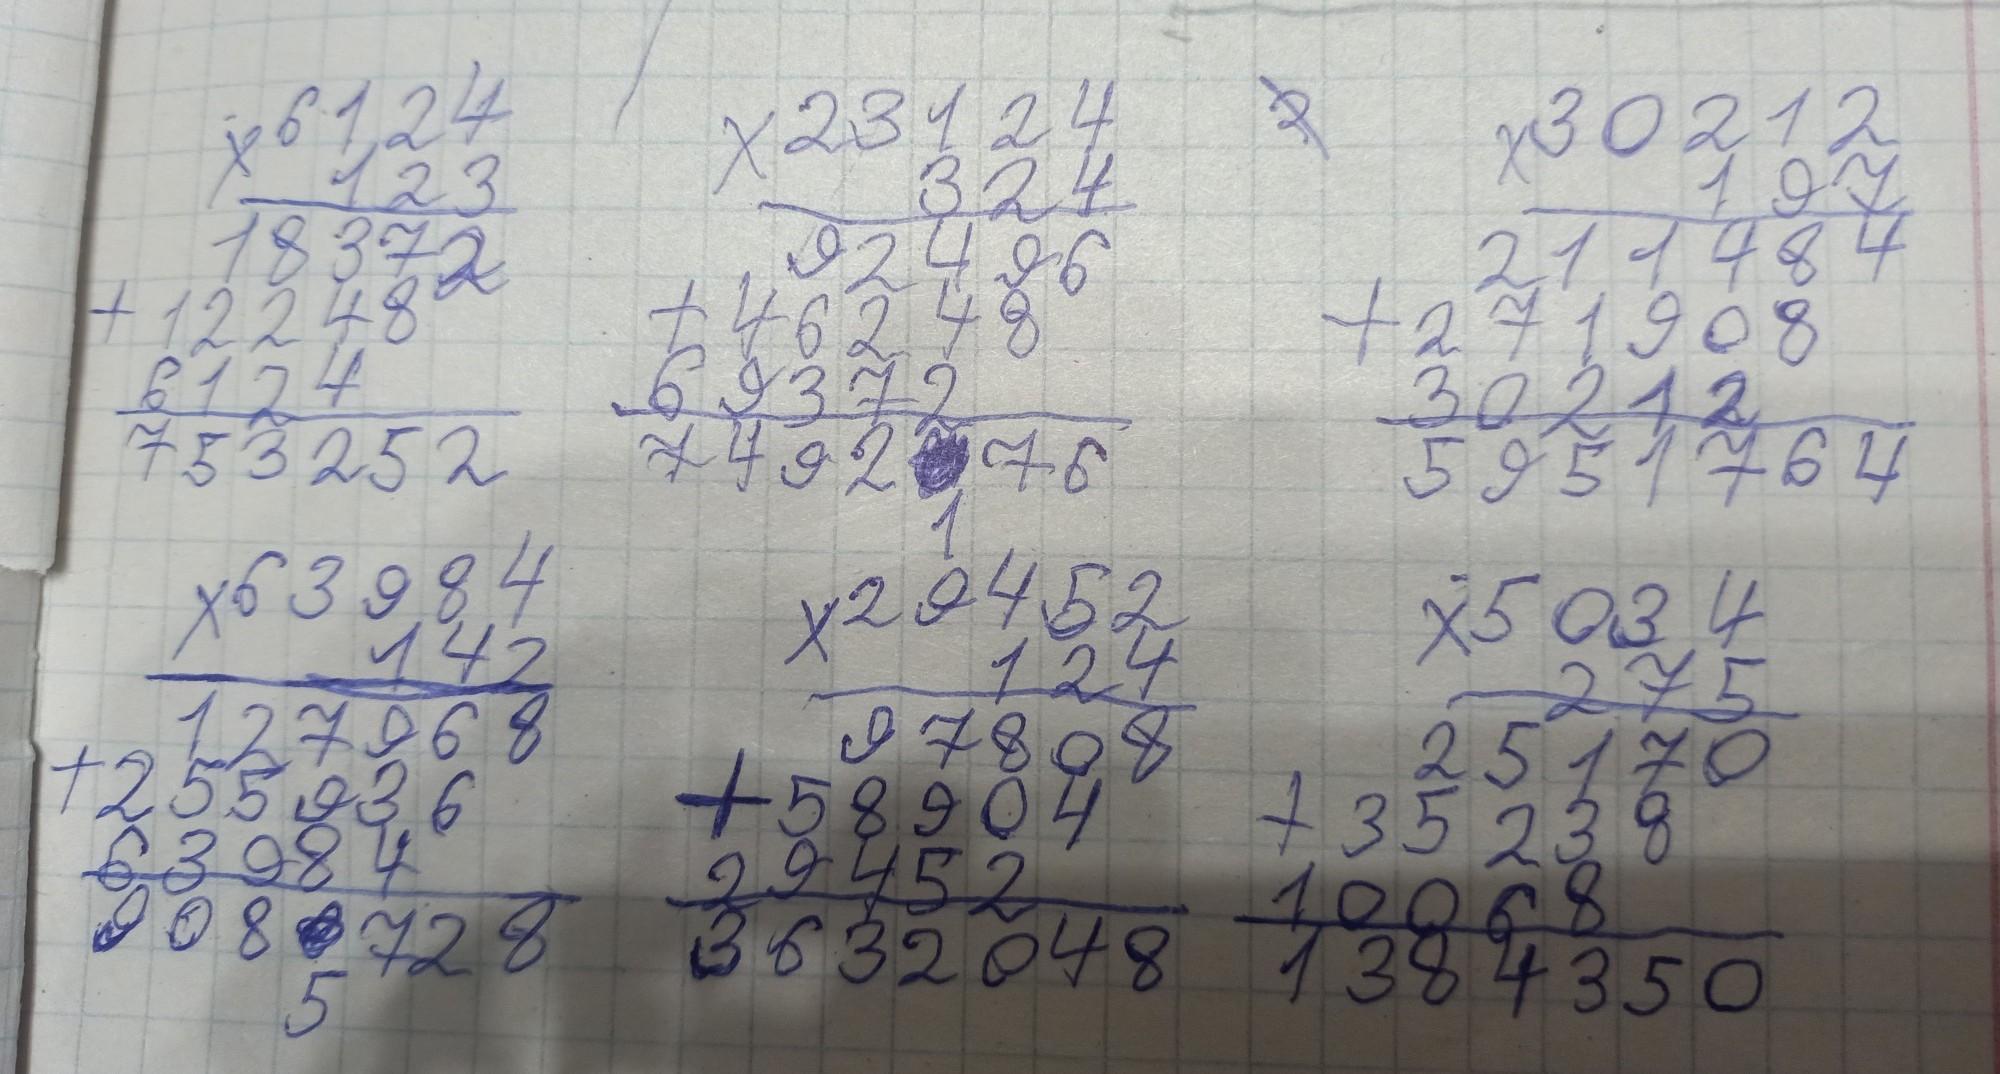 ×6124
123
18372
+12248
6124
753252
×23124
324
92496
+46248
69372
7492 76
1
×30212
197
211484
+271908
30212
5951764
×63984
142
127968
+255936
63984
908 728
5
×29452
124
97808
+58904
29452
3632048
×5034
275
25170
+35238
10068
1384350